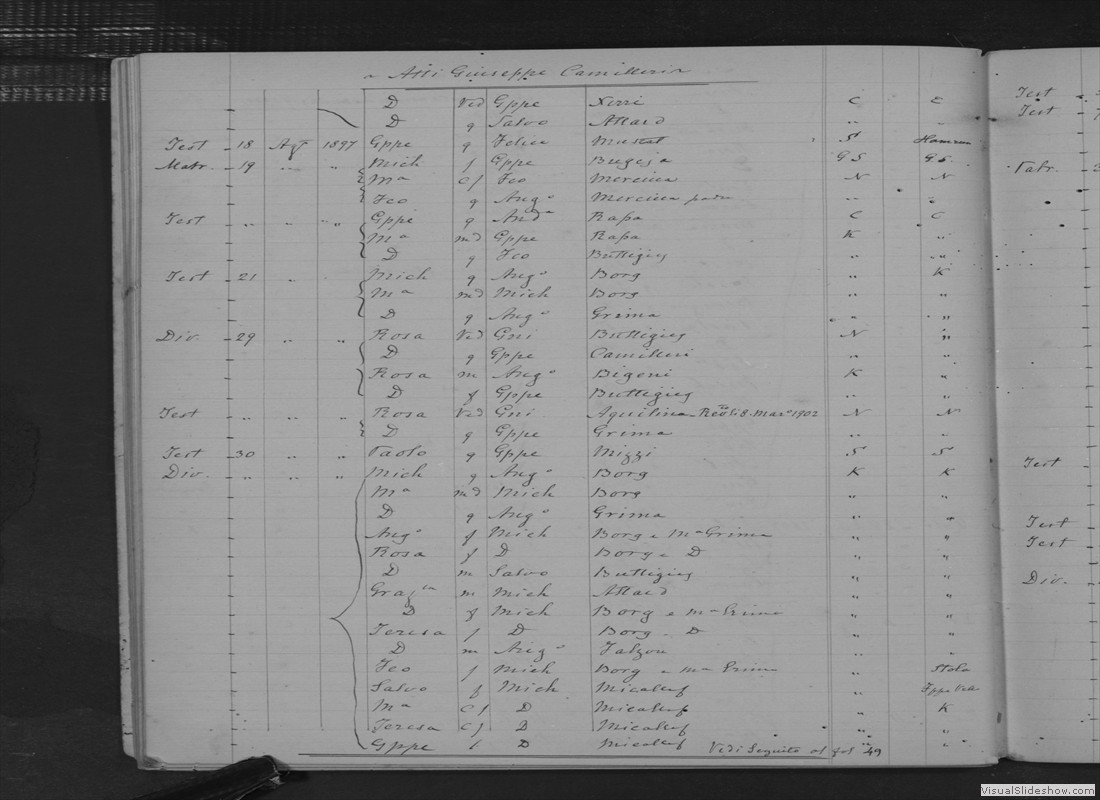 Atti Giuseppe Camilleri
D Ved Gppe C C
D q Salvo Attard " "
Test 18 Agt 1897 Gppe q Felice Muscat S
Matr. 19 " " Mich f Gppe Bugeja GS GS
Ma c/ Fco Mercieca N N
Fco q Ango Mercieca padre " "
Test " " " Gppe q Anda Rapa C C
Ma md Gppe Rapa K "
D q Fco Buttigieg " "
Test 21 " Mich q Ango Borg " K
Ma md Mich Borg " "
D q Ango Grima " "
Div. 29 " " Rosa Ved Gni Buttigieg N "
D q Gppe Camilleri " "
Rosa m Ango Bigeni K "
D f Gppe Buttigieg " "
Test " " " Rosa Ved Gni Aquilina 8 Marzo 1902 N N
D q Gppe Grima " "
Test 30 " " Paolo q Gppe Mizzi S S
Div. " " " Mich q Ango Borg K K
Ma md Mich Borg " "
D q Ango Grima " "
Ango f Mich Borg e Ma Grima " "
Rosa f D Borg e D " "
D m Salvo Buttigieg " "
m Mich Attard " "
D f Mich Borg e Ma Grima " "
Teresa f D Borg D " "
D m Ango Falzon " "
Fco f Mich Borg e Ma Grima "
Salvo f Mich Micalef "
Ma c/ D Micalef " K
Teresa c/ D Micalef " "
Gppe f D Micalef Vedi Seguito al fol. 49 " "
Test
Test
Matr.
Test
Test
Test
Div.
VisualSlideshow.com